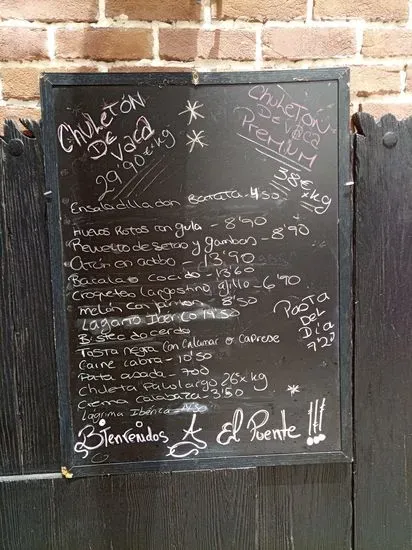 Chuletón
De
Vaca
29'90€xkg
Chuletón
De Vaca
Premium
38€xkg
Ensaladilla don Barata - 4'50
Huevos Rotos con gula - 8'90
Revuelto de setas y gambas - 8'90
Atún en adobo - 13'90
Bacalao Cocido - 13'60
Croquetas langostino grillo - 6'90
melón con jamón - 8'50
Lagarto Ibérico 14'50
Bistec de cerdo
Tosta negra con calamar o caprese
Carne cabra - 10'50
Pata asada - 7'00
Chuleta Palo largo 26€xkg
Crema calabaza - 3'50
Lágrima Ibérica
Pasta
Del
Día
Bienvenidos A El Puente!!!